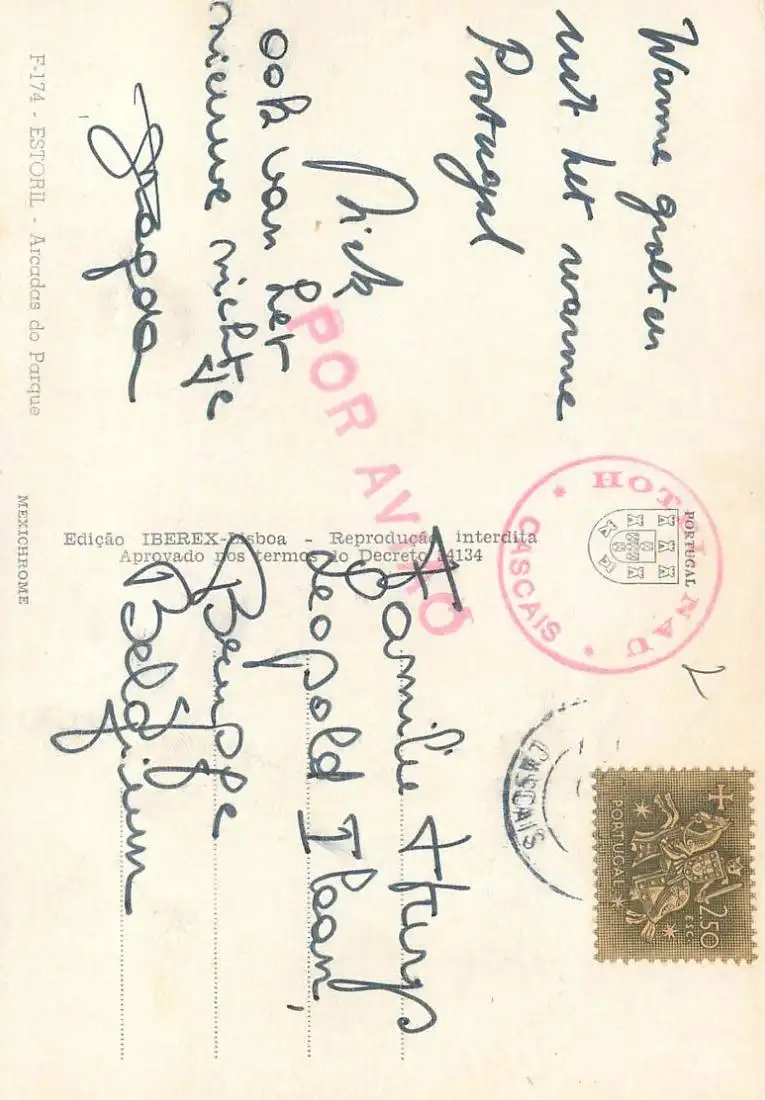 Warme groeten
uit het warme
Portugal
Nick
ook van het
nieuwe nichtje
F-174 - ESTORIL - Arcadas do Parque
MEXICHROME
Edição IBEREX-Lisboa - Reprodução interdita
Aprovado nos termos do Decreto 34134
POR AVIÃO
HOTEL NAU
CASCAIS
PORTUGAL
CASCAIS
PORTUGAL
2$50
ESC.
Familie
Leopold I laan,
Belgium